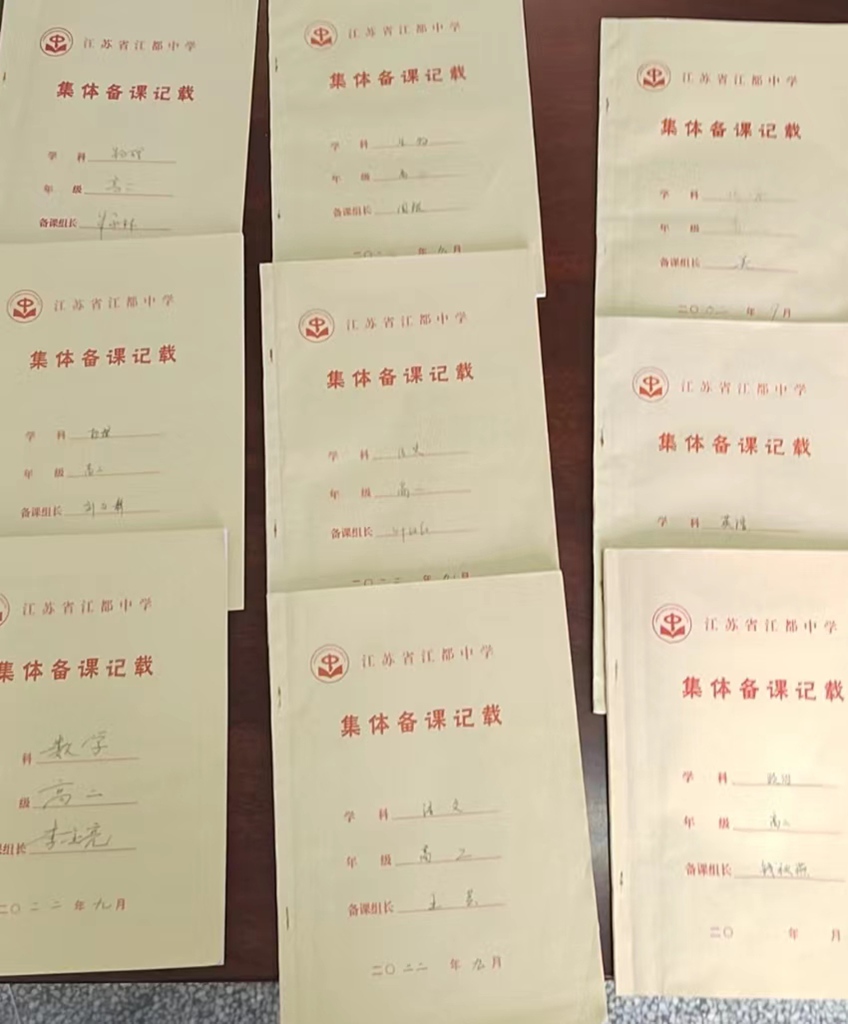 江苏省江都中学
集体备课记载
学 科 物理
年 级 高二
备课组长
江苏省江都中学
集体备课记载
学 科 生物
年 级 高二
备课组长
二〇二二年九月
江苏省江都中学
集体备课记载
学 科
年 级
备课组长
二〇二二年9月
江苏省江都中学
集体备课记载
学 科
年 级 高二
备课组长
江苏省江都中学
集体备课记载
学 科 历史
年 级 高二
备课组长
二〇二二年九月
江苏省江都中学
集体备课记载
学 科 英语
江苏省江都中学
集体备课记载
科 数学
级 高二
课组长 李玉亮
二〇二二年九月
江苏省江都中学
集体备课记载
学 科 语文
年 级 高二
备课组长 王
二〇二二年九月
江苏省江都中学
集体备课记载
学 科 政治
年 级 高二
备课组长 钱秋燕
二〇 年 月